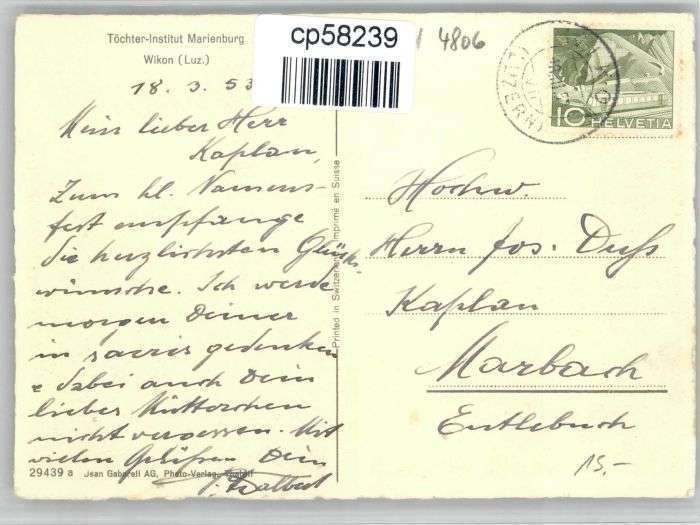 Töchter-Institut Marienburg
Wikon (Luz.)
18. 3. 53
cp58239
4806
Mein lieber Herr
Kaplan,
Zum hl. Namens-
fest empfange
die herzlichsten Glücks-
wünsche. Ich werde
morgen Deiner
in sacris gedenken
& dabei auch Dein
lieber Mütterchen
nicht vergessen. Mit
vielen Grüßen Dein
29439 a Jean Gaberell AG, Photo-Verlag, Thalwil
Printed in Switzerland Imprimé en Suisse
10 HELVETIA
(LUZERN)
Hochw.
Herrn Jos. Duss
Kaplan
Marbach
Entlebuch
15.-